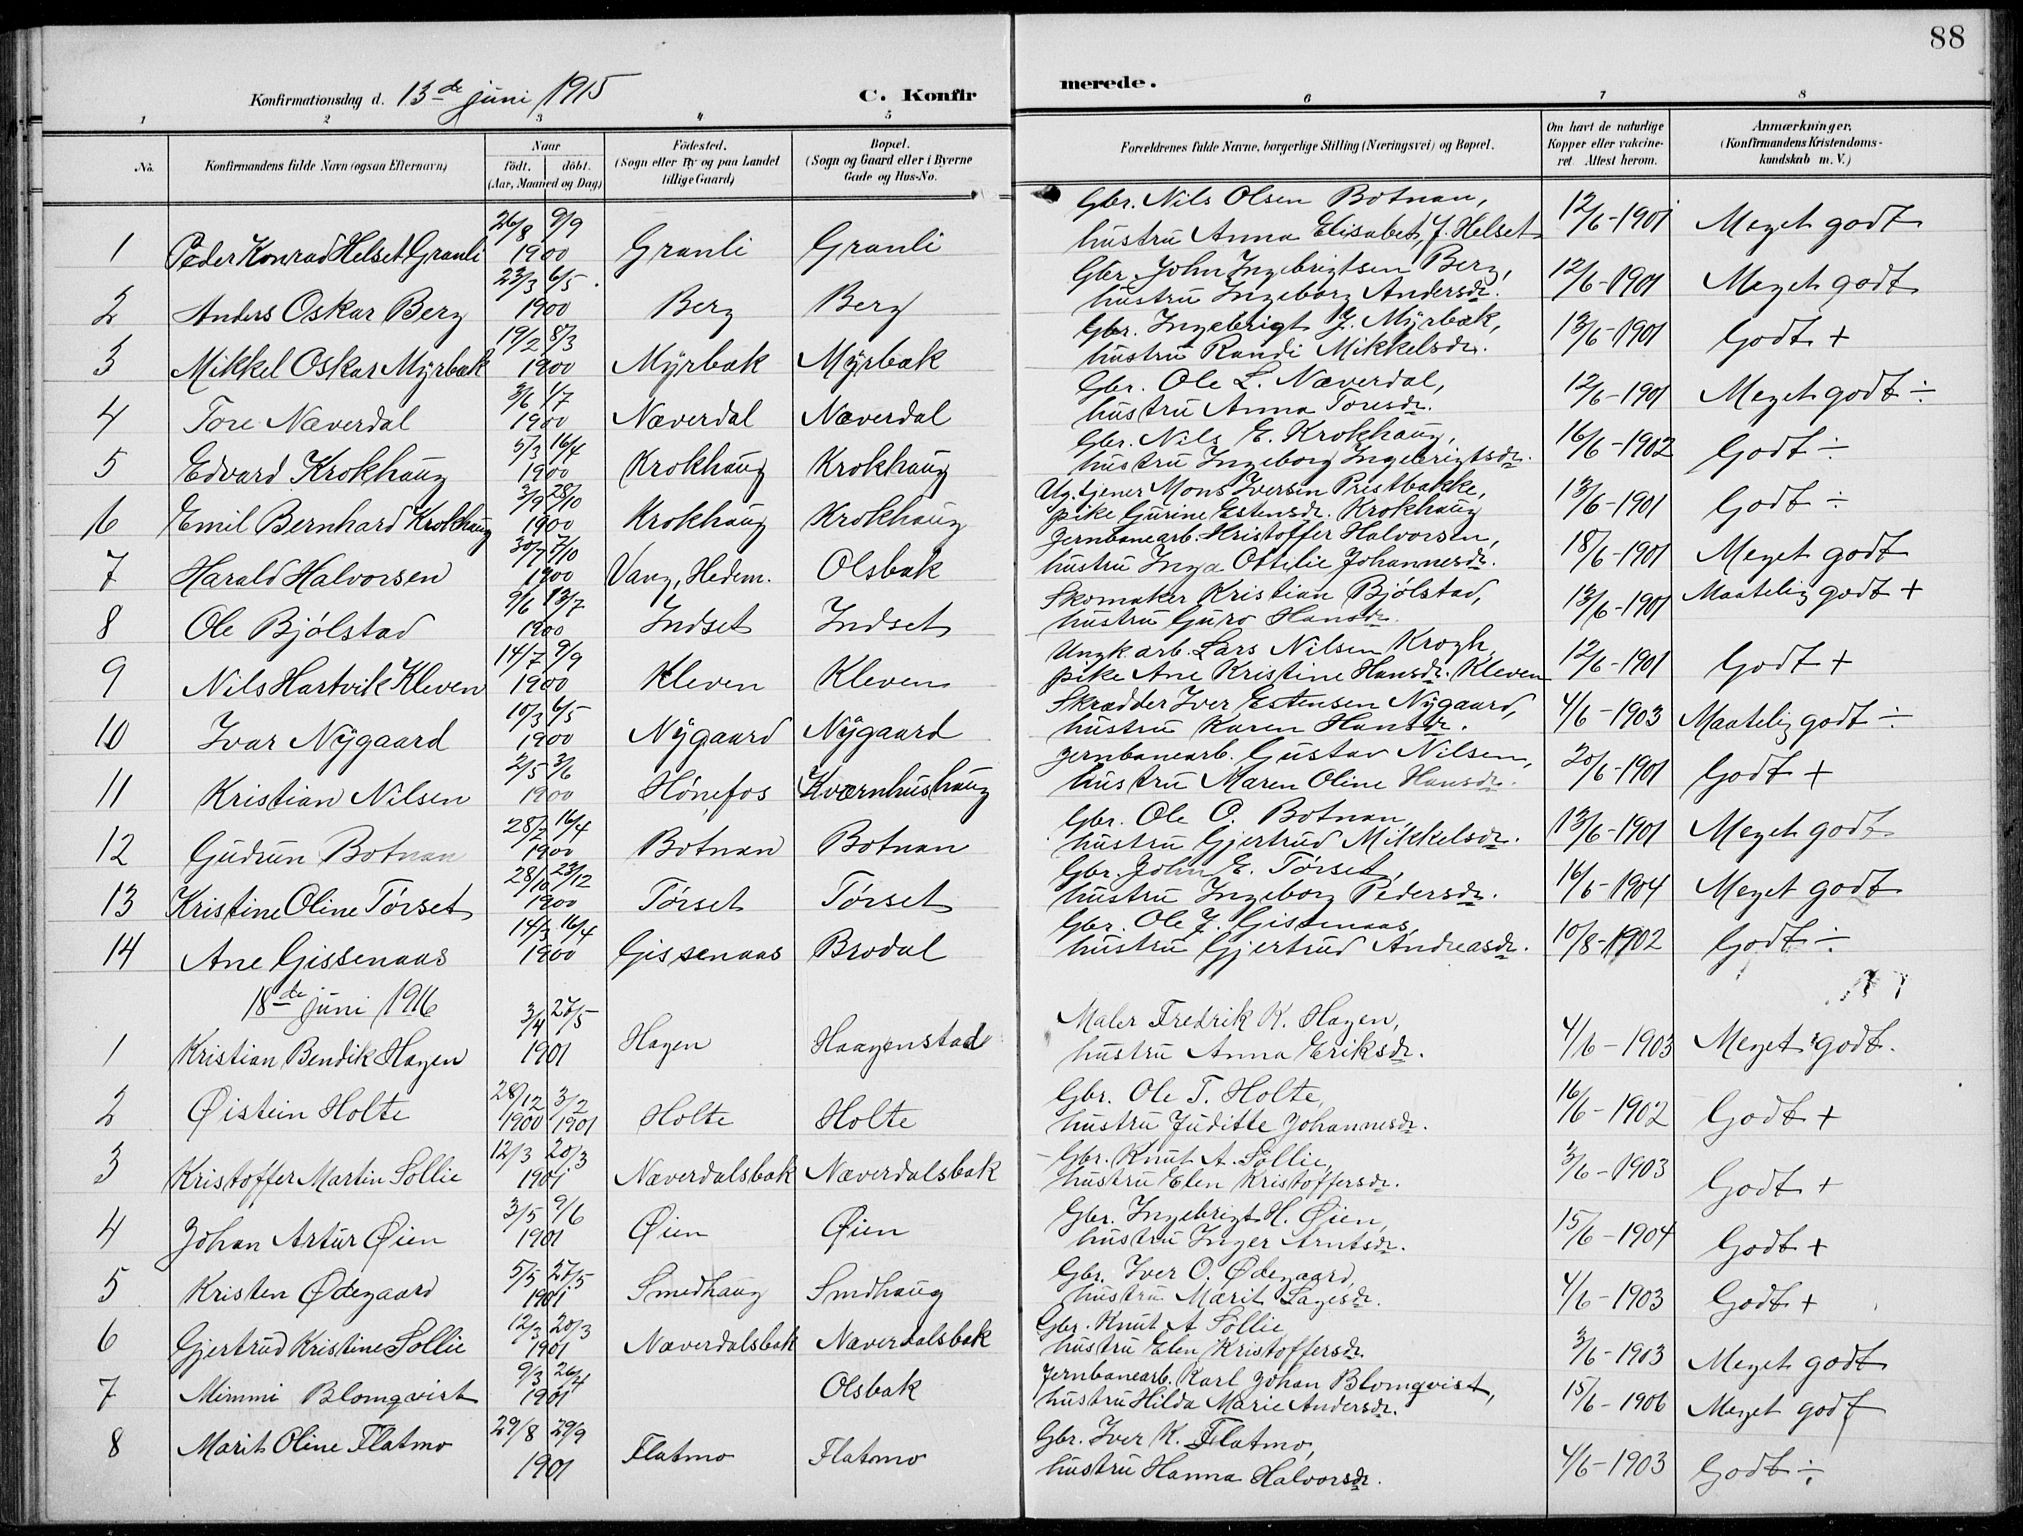 88
Konfirmationsdag d. 13de juni 1915
C. Konfirmerede.
1 2 3 4 5 6 7 8
No. Konfirmandens fulde Navn (ogsaa Efternavn) Naar født. døbt. (Aar, Maaned og Dag) Fødested. (Sogn eller By og paa Landet tillige Gaard) Bopæl. (Sogn og Gaard eller i Byerne Gade og Hus-No. Forældrenes fulde Navne, borgerlige Stilling (Næringsvei) og Bopæl. Om havt de naturlige Kopper eller vakcineret. Attest herom. Anmærkninger. (Konfirmandens Kristendomskundskab m. V.)
1 Peder Konrad Helset Granli 26/8 9/9 1900 Granli Granli Gbr. Nils Olsen Botnan, hustru Anna Elisabet J. Helset 12/6-1901 Meget godt
2 Anders Oskar Berg 23/3 6/5 1900 Berg Berg Gbr. John Ingebrigtsen Berg, hustru Ingeborg Andersdr. 12/6-1901 Meget godt
3 Mikkel Oskar Myrbak 19/2 8/3 1900 Myrbak Myrbak Gbr. Ingebrigt J. Myrbak, hustru Randi Mikkelsdr. 13/6-1901 Godt +
4 Tore Næverdal 3/6 1/7 1900 Næverdal Næverdal Gbr. Ole L. Næverdal, hustru Anna Toresdr. 12/6-1901 Meget godt ÷
5 Edvard Krokhaug 5/3 16/4 1900 Krokhaug Krokhaug Gbr. Nils E. Krokhaug, hustru Ingeborg Ingebrigtsdr. 16/6-1902 Godt ÷
6 Emil Bernhard Krokhaug 3/9 28/10 1900 Krokhaug Krokhaug Ug. tjener Mons Iversen Prestbakke, pike Gurine Estensdr. Krokhaug 13/6-1901 Godt ÷
7 Harald Halvorsen 30/7 7/10 1900 Vang, Hedem. Olsbak Jernbanearb. Kristoffer Halvorsen, hustru Inga Ottilie Johannesdr. 18/6-1901 Meget godt
8 Ole Bjølstad 9/6 13/7 1900 Indset Indset Skomaker Kristian Bjølstad, hustru Guro Hansdr. 13/6-1901 Maatelig godt +
9 Nils Hartvik Kleven 14/7 9/9 1900 Kleven Kleven Ungk. arb. Lars Nilsen Krogh, pike Ane Kristine Hansdr. Kleven 12/6-1901 Godt +
10 Ivar Nygaard 10/3 6/5 1900 Nygaard Nygaard Skrædder Iver Estensen Nygaard, hustru Karen Hansdr. 4/6-1903 Maatelig godt ÷
11 Kristian Nilsen 2/5 3/6 1900 Hønefos Kværnhushaug Jernbanearb. Gustav Nilsen, hustru Maren Oline Hansdr. 20/6-1901 Godt +
12 Gudrun Botnan 28/2 16/4 1900 Botnan Botnan Gbr. Ole O. Botnan, hustru Gjertrud Mikkelsdr. 13/6-1901 Meget godt
13 Kristine Oline Tørset 28/10 23/12 1900 Tørset Tørset Gbr. John E. Tørset, hustru Ingeborg Pedersdr. 16/6-1904 Meget godt
14 Ane Gissenaas 14/3 16/4 1900 Gissenaas Brodal Gbr. Ole J. Gissenaas, hustru Gjertrud Andreasdr. 10/8-1902 Godt ÷
18de juni 1916
1 Kristian Bendik Hagen 3/4 27/5 1901 Hagen Haagenstad Maler Fredrik K. Hagen, hustru Anna Eriksdr. 4/6-1903 Meget godt.
2 Øistein Holte 28/12 1900 3/2 1901 Holte Holte Gbr. Ole T. Holte, hustru Juditte Johannesdr. 16/6-1902 Godt +
3 Kristoffer Martin Sollie 12/3 20/3 1901 Næverdalsbak Næverdalsbak Gbr. Knut A. Sollie, hustru Elen Kristoffersdr. 3/6-1903 Godt +
4 Johan Artur Øien 3/5 9/6 1901 Øien Øien Gbr. Ingebrigt H. Øien, hustru Inger Arntsdr. 15/6-1904 Godt +
5 Kristen Ødegaard 5/5 27/5 1901 Smedhaug Smdhaug Gbr. Iver O. Ødegaard, hustru Marit Lagesdr. 4/6-1903 Godt +
6 Gjertrud Kristine Sollie 12/3 20/3 1901 Næverdalsbak Næverdalsbak Gbr. Knut A Sollie hustru Elen Kristoffersdr. 3/6-1903 Meget godt
7 Mimmi Blomqvist 9/3 26/4 1901 Olsbak Jernbanearb. Karl Johan Blomqvist, hustru Hilda Marie Andersdr. 15/6-1906 Meget godt
8 Marit Oline Flatmo 29/8 29/9 1901 Flatmo Flatmo Gbr. Iver K. Flatmo, hustru Hanna Halvorsdr. 4/6-1903 Godt ÷